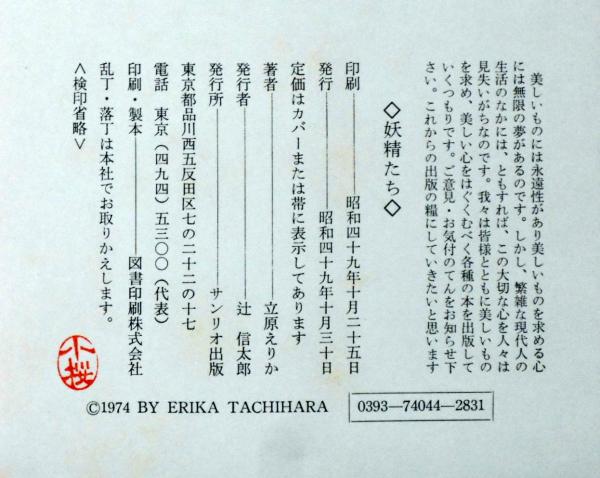 美しいものには永遠性があり美しいものを求める心
には無限の夢があるのです。しかし、繁雑な現代人の
生活のなかには、ともすれば、この大切な心を人々は
見失いがちなのです。我々は皆様とともに美しいもの
を求め、美しい心をはぐくむべく各種の本を出版して
いくつもりです。ご意見・お気付のてんをお知らせ下
さい。これからの出版の糧にしていきたいと思います
◇妖精たち◇
印刷――昭和四十九年十月二十五日
発行――昭和四十九年十月三十日
定価はカバーまたは帯に表示してあります
著者――立原えりか
発行者――辻 信太郎
発行所――サンリオ出版
東京都品川西五反田区七の二十二の十七
電話 東京(四九四)五三〇〇(代表)
印刷・製本――図書印刷株式会社
乱丁・落丁は本社でお取りかえします。
<検印省略>
©1974 BY ERIKA TACHIHARA
0393―74044―2831